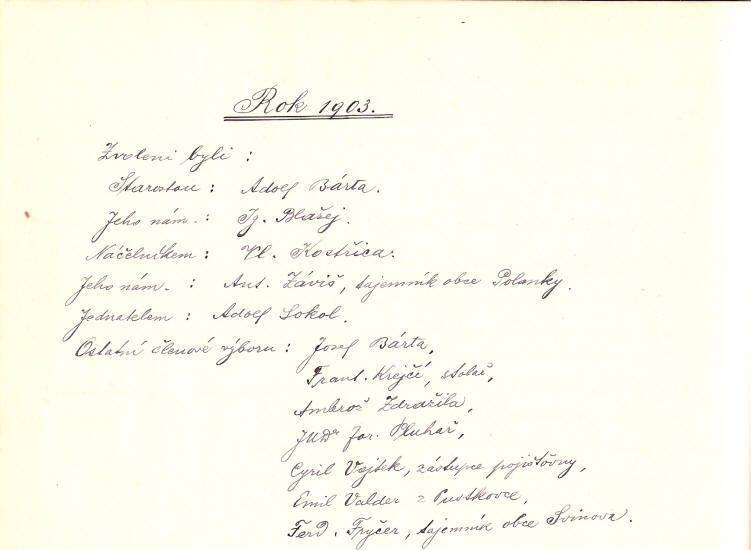 Rok 1903.
Zvoleni byli :
Starostou : Adolf Bárta.
Jeho nám. : Ig. Blažej.
Náčelníkem : Vl. Kostřica.
Jeho nám. : Ant. Záviš, tajemník obce Polanky.
Jednatelem : Adolf Sokol.
Ostatní členové výboru : Josef Bárta,
Frant. Krejčí, stolař,
Ambrož Zdražila,
JUDr Jar. Pluhař,
Cyril Vojtek, zástupce pojišťovny,
Emil Valder z Pustkovce,
Ferd. Fryčer, tajemník obce Svinova.